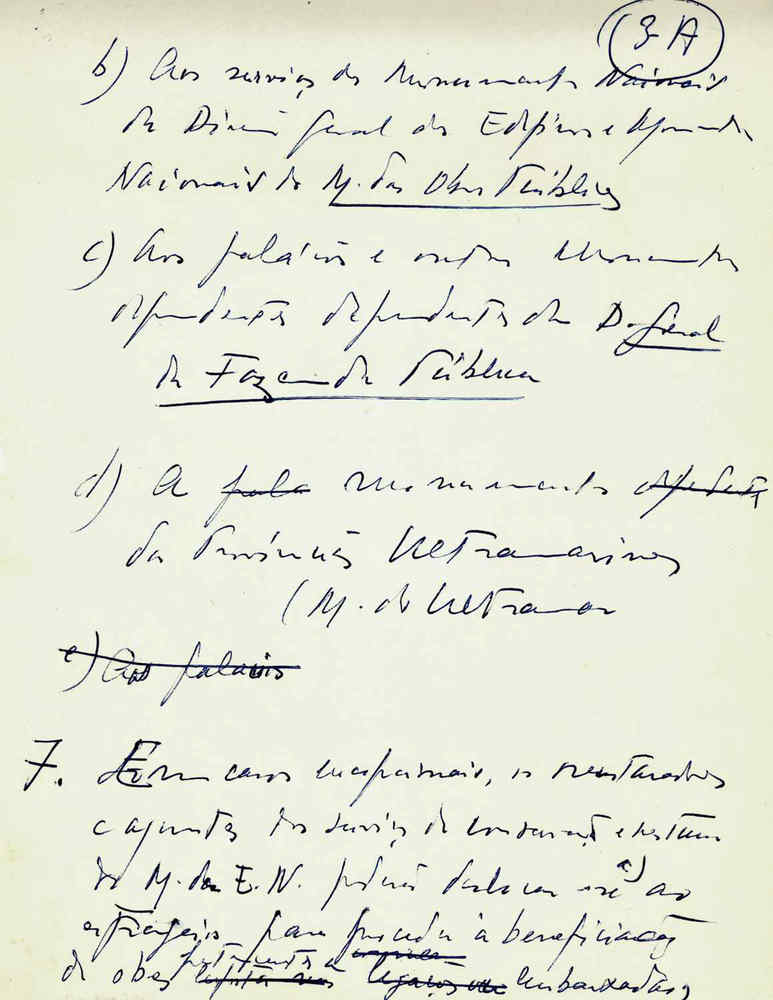 3-A
b) Aos serviços dos Monumentos Nacionais
da Direcção Geral dos Edifícios e Monumentos
Nacionais do M. das Obras Públicas
c) Aos palácios e outros Monumentos
dependentes dependentes da D. Geral
da Fazenda Pública
d) A pala monumentos
das Províncias Ultramarinas
(M. do Ultramar
e) Aos palácios
7. Em casos excepcionais, os restauradores
e agentes dos serviços de conservação e restauro
do M. da E. N. poderão deslocar-se a) ao
estrangeiro para proceder à beneficiações
de obras pertencentes a Legações Embaixadas